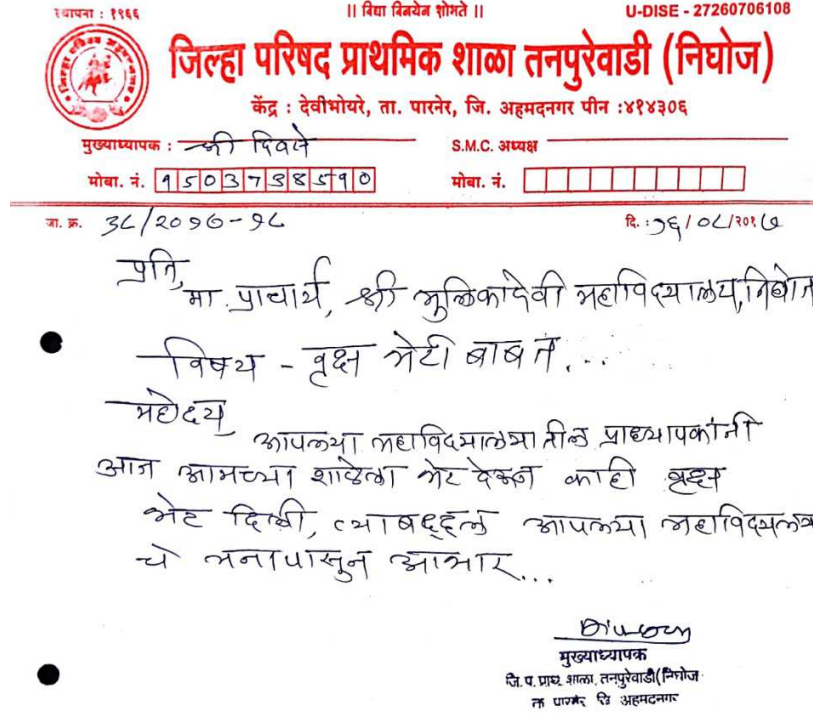 स्थापना : १९६६
|| विद्या विनयेन शोभते ||
U-DISE - 27260706108
जिल्हा परिषद प्राथमिक शाळा तनपुरेवाडी (निघोज)
केंद्र : देवीभोयरे, ता. पारनेर, जि. अहमदनगर पीन :४१४३०६
मुख्याध्यापक : श्री दिवटे
S.M.C. अध्यक्ष
मोबा. नं.
मोबा. नं.
जा. क्र. ३८/२०१७-१८
दि. : १६/०८/२०१७
प्रति,
मा. प्राचार्य, श्री मुलिकादेवी महाविद्यालय, निघोज
विषय - वृक्ष भेटी बाबत...
महोदय,
आपल्या महाविद्यालयातील प्राध्यापकांनी
आज आमच्या शाळेला भेट देऊन काही वृक्ष
भेट दिली, त्याबद्दल आपल्या महाविद्यालय
चे मनापासुन आभार...
मुख्याध्यापक
जि. प. प्राथ. शाळा, तनपुरेवाडी (निघोज
ता पारनेर जि अहमदनगर